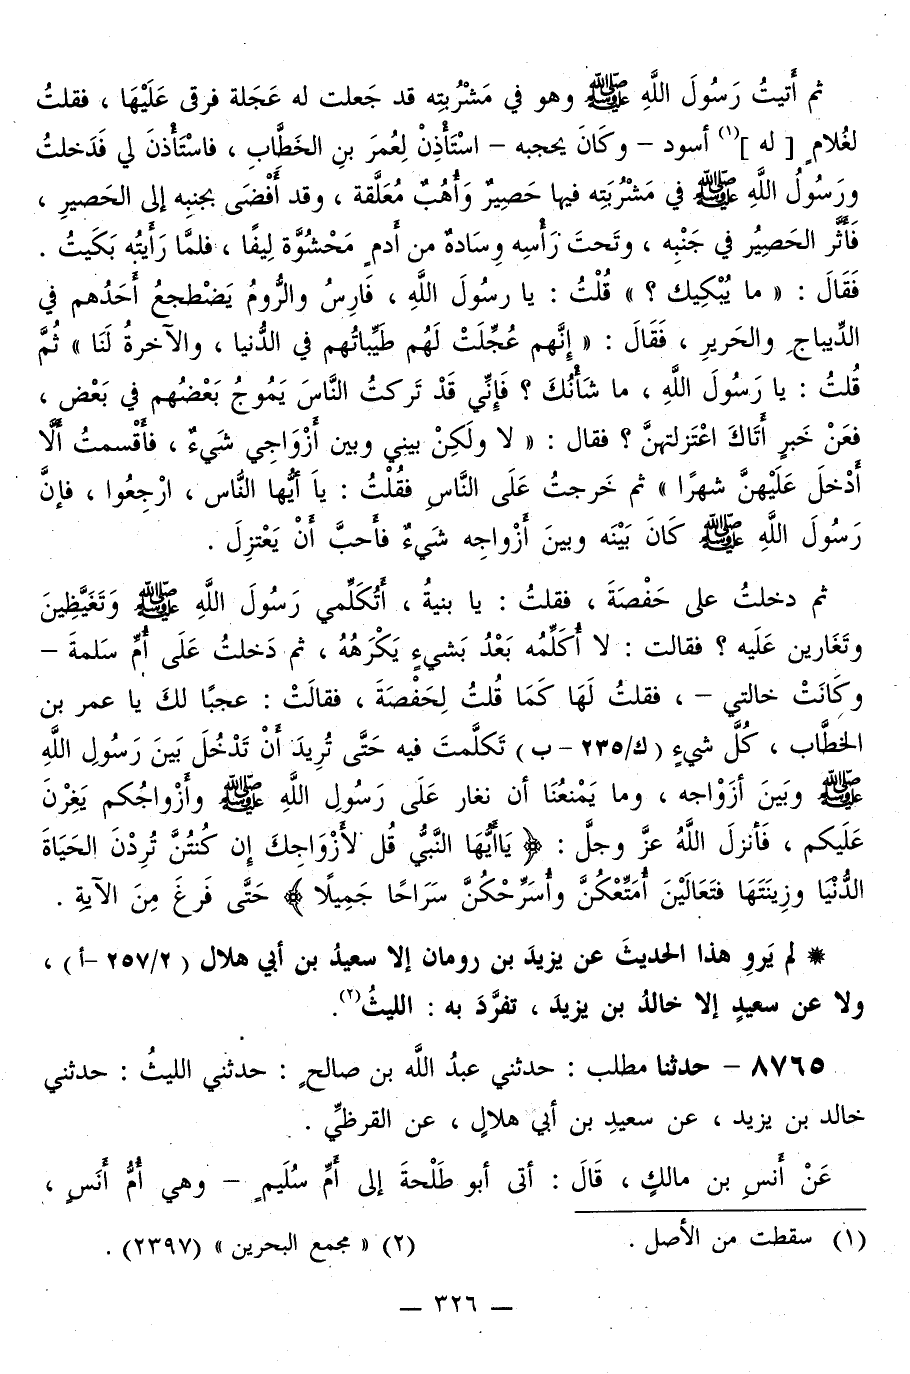 ثم أَتيتُ رَسُولَ اللَّهِ ﷺ وهو في مَشْرُبتِه قد جَعلت له عَجَلة فرقى عَلَيْهَا ، فقلتُ
لغُلامٍ [ له ](١) أسود – وكَانَ يحجبه – استَأْذِنْ لِعُمرَ بنِ الخَطَّابِ ، فاستَأْذنَ لي فَدَخلتُ
ورَسُولُ اللَّهِ ﷺ في مَشْرُبَتِه فيها حَصِيرٌ وَأُهُبٌ مُعَلَّقة ، وقد أَفْضَى بجنبِه إلى الحَصيرِ ،
فَأَثَّر الحَصِيُر في جَنْبِه ، وتَحتَ رَأْسِه وِسَادةٌ من أَدمٍ مَحْشُوَّة لِيفًا ، فلمَّا رَأَيتُه بَكَيتُ .
فَقَالَ : « ما يُبْكِيك ؟ » قُلْتُ : يا رسُولَ اللَّهِ ، فَارِسُ والرُّومُ يَضْطجعُ أَحَدُهم في
الدِّيباجِ والحَريرِ ، فَقَالَ : « إِنَّهم عُجِّلَتْ لَهُم طَيِّباتُهم في الدُّنيا ، والآخرةُ لَنَا » ثُمَّ
قُلتُ : يا رَسُولَ اللَّهِ ، ما شَأْنُكَ ؟ فَإِنِّي قَدْ تَركتُ النَّاسَ يَمُوجُ بَعْضُهم في بَعْض ،
فعَنْ خَبرٍ أَتَاكَ اعْتَزلتهنَّ ؟ فقال : « لا ولَكِنْ بيني وبين أَزْوَاجي شَيءٌ ، فأَقْسمتُ أَلَّا
أَدْخلَ عَلَيْهنَّ شهرًا » ثم خَرجتُ عَلَى النَّاسِ فقُلْتُ : ياَ أَيُّها النَّاس ، ارْجِعُوا ، فإنَّ
رَسُولَ اللَّهِ ﷺ كَانَ بَيْنَه وبينَ أَزْواجِه شَيءٌ فأَحبَّ أَنْ يَعْتزِلَ .
ثم دخلتُ على حَفْصَةَ ، فقلتُ : يا بنيةُ ، أَتُكَلِّمي رَسُولَ اللَّهِ ﷺ وَتَغَيَّظِينَ
وتَغَارين عَلَيه ؟ فقالت : لا أُكَلِّمُه بَعْدُ بَشيءٍ يَكْرَهُهُ ، ثم دَخلتُ عَلَى أُمِّ سَلمةَ –
وكَانَتْ خالتي – ، فقلتُ لَهَا كَمَا قُلتُ لِحَفْصَةَ ، فقالَتْ : عجبًا لكَ يا عمر بن
الخطَّاب ، كُلَّ شيءٍ ( ك/٢٣٥ – ب ) تَكلَّمتَ فيه حَتَّى تُريدَ أَنْ تَدْخُلَ بَينَ رَسُولِ اللَّهِ
ﷺ وبَينَ أزَوْاجه ، وما يَمْنعُنَا أن نغار عَلَى رَسُولِ اللَّهِ ﷺ وأَزْواجُكم يَغِرْنَ
عَلَيكم ، فَأنزلَ اللَّهُ عزَّ وجلَّ : ﴿ يَاأَيُّهَا النَّبيُّ قُل لأَزْوَاجِكَ إِن كُنتُنَّ تُرِدْنَ الحَيَاةَ
الدُّنْيَا وزِينَتَهَا فتَعَالَيْنَ أُمَتِّعْكُنَّ وأُسَرِّحْكُنَّ سَرَاحًا جَمِيلًا ﴾ حَتَّى فَرغَ مِنَ الآيةِ .
* لم يَروِ هذا الحديثَ عن يزيدَ بن رومان إلا سعيدُ بن أبي هلال ( ٢٥٧/٢ –أ ) ،
ولا عن سعيدٍ إلا خالدُ بن يزيدَ ، تفرَّدَ به : الليثُ(٢).
٨٧٦٥ – حدثنا مطلب : حدثني عبدُ اللَّه بن صالحٍ : حدثني الليثُ : حدثني
خالد بن يزيد ، عن سعيدِ بن أبي هلالٍ ، عن القرظيِّ .
عَنْ أَنسِ بن مالكٍ ، قَالَ : أتى أبو طَلْحةَ إلى أُمِّ سُلَيمٍ – وهي أُمُّ أَنَسٍ ،
(١) سقطت من الأصل . (٢) « مجمع البحرين » (٢٣٩٧) .
– ٣٢٦ –